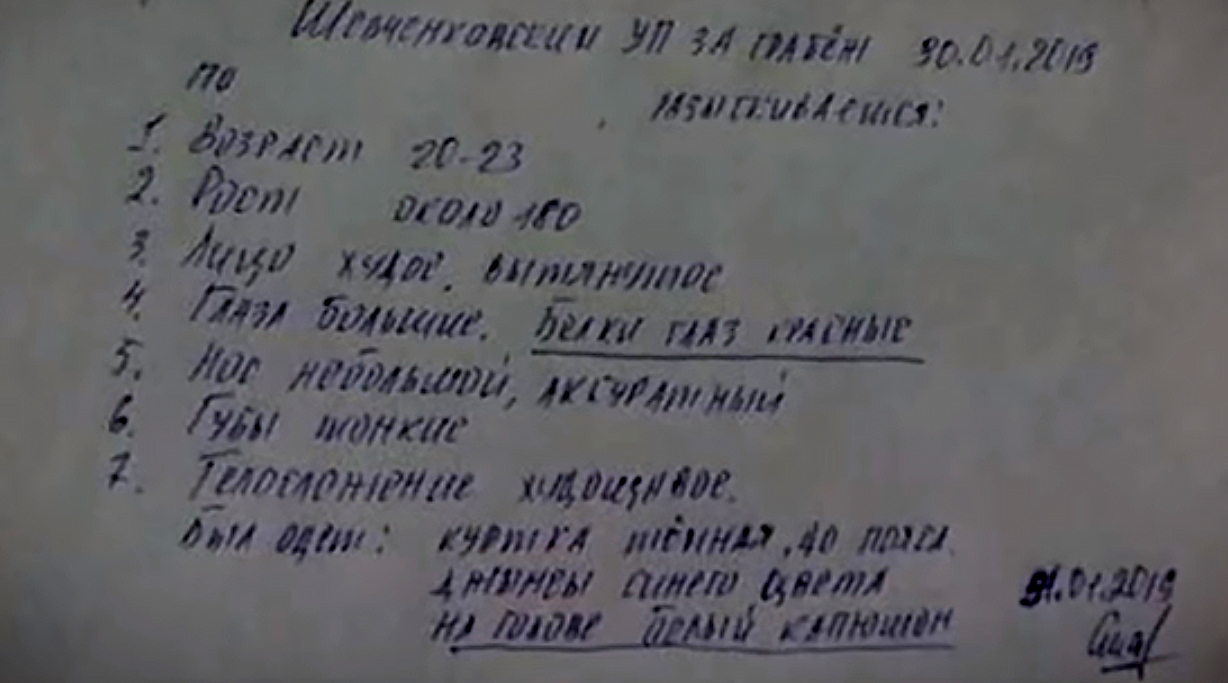 Шевченковским УП за грабёж 30.01.2019
по
разыскивается:
1. Возраст 20-23
2. Рост около 180
3. Лицо худое, вытянутое
4. Глаза большие. Белки глаз красные
5. Нос небольшой, аккуратный
6. Губы тонкие
7. Телосложение худощавое.
Был одет: куртка тёмная, до пояса.
джинсы синего цвета
31.01.2019
на голове белый капюшон